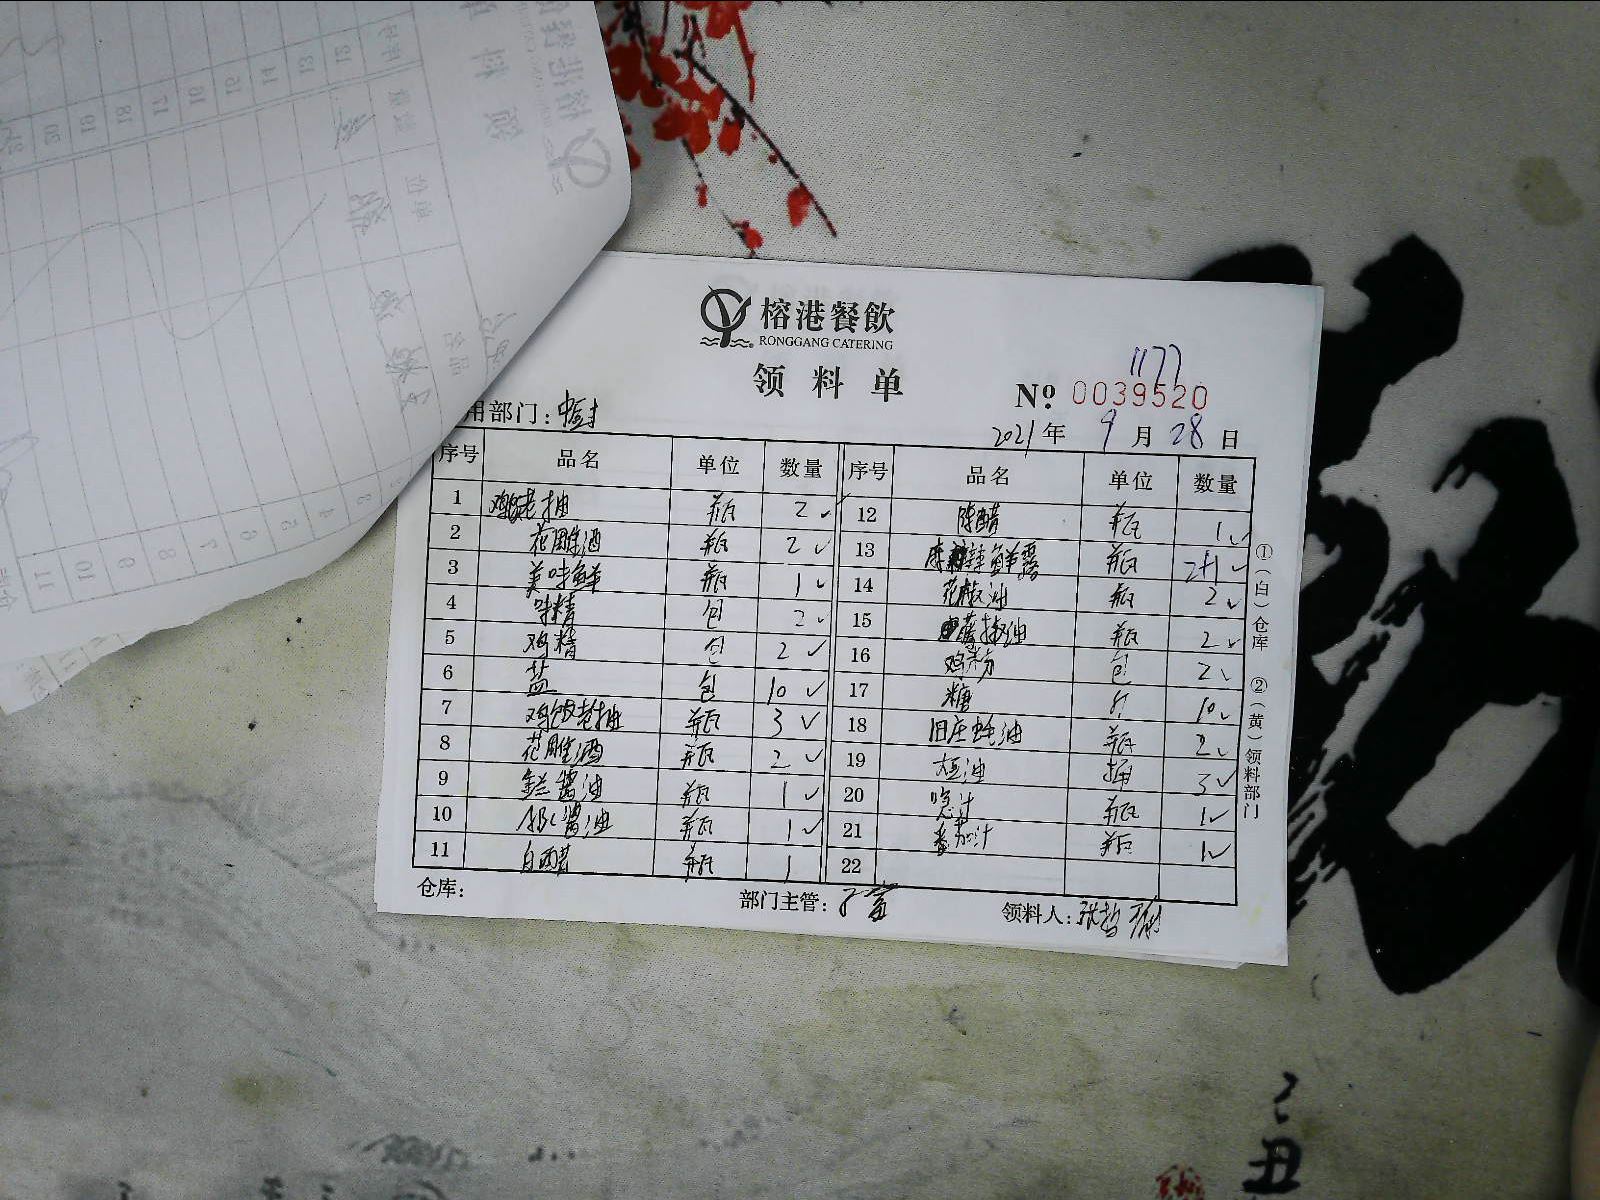 榕港餐飲
RONGGANG CATERING
领料单
1177
№ 0039520
用部门:
2021年9月28日
序号 品名 单位 数量 序号 品名 单位 数量
1 鸡饭老抽 瓶 2 ✓ 12 陈醋 瓶 1 ✓
2 花雕酒 瓶 2 ✓ 13 辣鲜露 瓶 2+1 ✓
3 美味鲜 瓶 1 ✓ 14 花椒油 瓶 2 ✓
4 味精 包 2 ✓ 15 椒油 瓶 2 ✓
5 鸡精 包 2 ✓ 16 鸡粉 包 2 ✓
6 盐 包 10 ✓ 17 糖 斤 10 ✓
7 鸡饭老抽 瓶 3 ✓ 18 旧庄蚝油 瓶 2 ✓
8 花雕酒 瓶 2 ✓ 19 大豆油 桶 3 ✓
9 酱油 瓶 1 ✓ 20 喼汁 瓶 1 ✓
10 ABC酱油 瓶 1 ✓ 21 番茄汁 瓶 1 ✓
11 白醋 瓶 1 22
仓库: 部门主管: 领料人:张哲
①(白)仓库 ②(黄)领料部门
丑